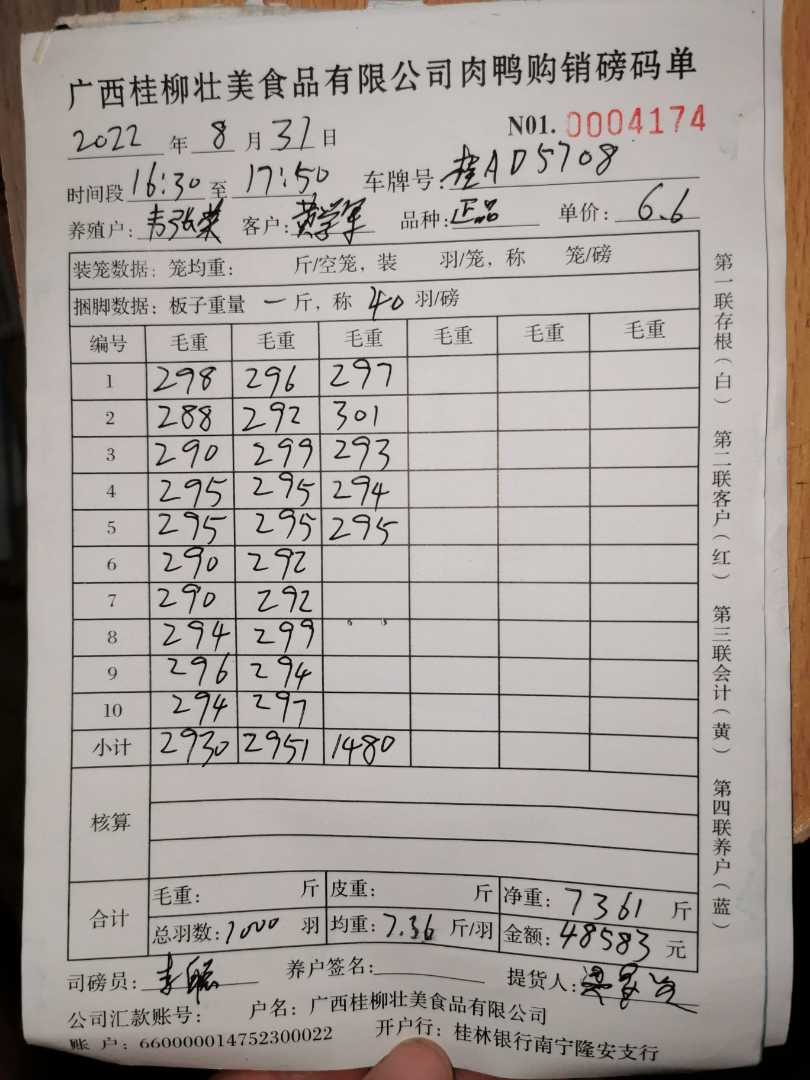 广西桂柳壮美食品有限公司肉鸭购销磅码单
2022 年 8 月 31 日 N01. 0004174
时间段 16:30 至 17:50 车牌号: 桂AD5708
养殖户: 客户: 黄学军 品种: 正品 单价: 6.6
装笼数据: 笼均重: 斤/空笼, 装 羽/笼, 称 笼/磅
捆脚数据: 板子重量 一 斤, 称 40 羽/磅
编号 毛重 毛重 毛重 毛重 毛重 毛重
1 298 296 297
2 288 292 301
3 290 299 293
4 295 295 294
5 295 295 295
6 290 292
7 290 292
8 294 299
9 296 294
10 294 297
小计 2930 2951 1480
核算
合计 毛重: 斤 皮重: 斤 净重: 7361 斤
总羽数: 1000 羽 均重: 7.36 斤/羽 金额: 48583 元
司磅员: 养户签名: 提货人:
公司汇款账号: 户名: 广西桂柳壮美食品有限公司
账 户: 660000014752300022 开户行: 桂林银行南宁隆安支行
第一联存根(白) 第二联客户(红) 第三联会计(黄) 第四联养户(蓝)